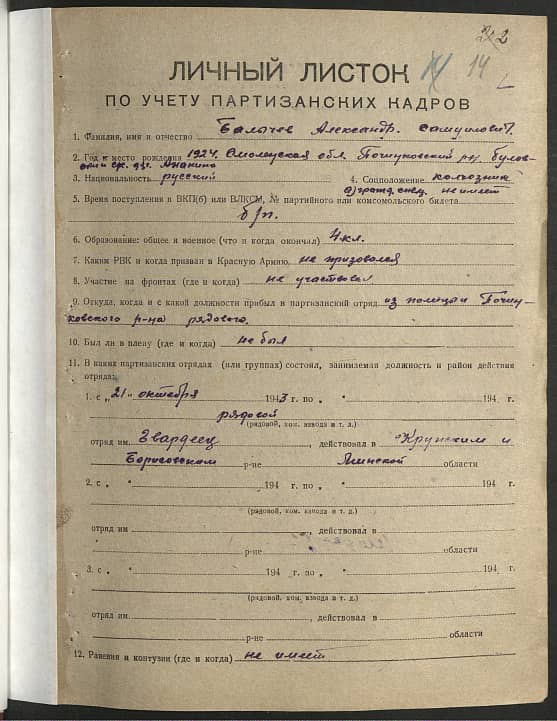 2
14 14
ЛИЧНЫЙ ЛИСТОК
ПО УЧЕТУ ПАРТИЗАНСКИХ КАДРОВ
1. Фамилия, имя и отчество Балычев Александр. Самуилович.
2. Год и место рождения 1924. Смоленская обл. Починковский р-н. Булов-
ский с/с. дер. Ананино
3. Национальность русский 4. Соцположение колхозник
а) гражд. спец. не имеет
5. Время поступления в ВКП(б) или ВЛКСМ, № партийного или комсомольского билета
б/п.
6. Образование: общее и военное (что и когда окончал) 4 кл.
7. Каким РВК и когда призван в Красную Армию не призовался
8. Участие на фронтах (где и когда) не участвовал
9. Откуда, когда и с какой должности прибыл в партизанский отряд из полиции Почин-
ковского р-на рядового.
10. Был ли в плену (где и когда) не был
11. В каких партизанских отрядах (или группах) состоял, занимаемая должность и район действия
отряда:
1. с „21" октября 1943 г. по „ " 194 г.
рядовой
(рядовой, ком. взвода и т. д.)
отряд им. Гвардеец, действовал в Крупским и
Борисовском р-не Минской области
2. с „ " 194 г. по „ " 194 г.
(рядовой, ком. взвода и т. д.)
отряд им , действовал в
р-не области
3. с „ " 194 г. по „ " 194 г.
(рядовой, ком. взвода и т. д.)
отряд им , действовал в
р-не области
12. Ранения и контузии (где и когда) не имеет